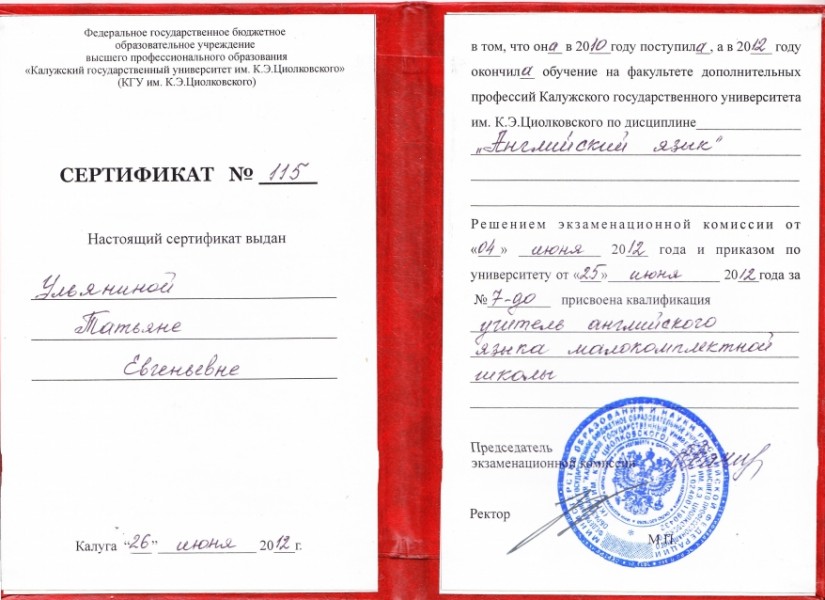 Федеральное государственное бюджетное
образовательное учреждение
высшего профессионального образования
«Калужский государственный университет им. К.Э.Циолковского»
(КГУ им. К.Э.Циолковского)
СЕРТИФИКАТ № 115
Настоящий сертификат выдан
Ульяниной
Татьяне
Евгеньевне
Калуга "26" июня 2012 г.
в том, что она в 2010 году поступила, а в 2012 году
окончила обучение на факультете дополнительных
профессий Калужского государственного университета
им. К.Э.Циолковского по дисциплине
„Английский язык"
Решением экзаменационной комиссии от
«04» июня 2012 года и приказом по
университету от «25» июня 2012 года за
№ 7-до присвоена квалификация
учитель английского
языка малокомплектной
школы
Председатель
экзаменационной комиссии
Ректор
М.П.